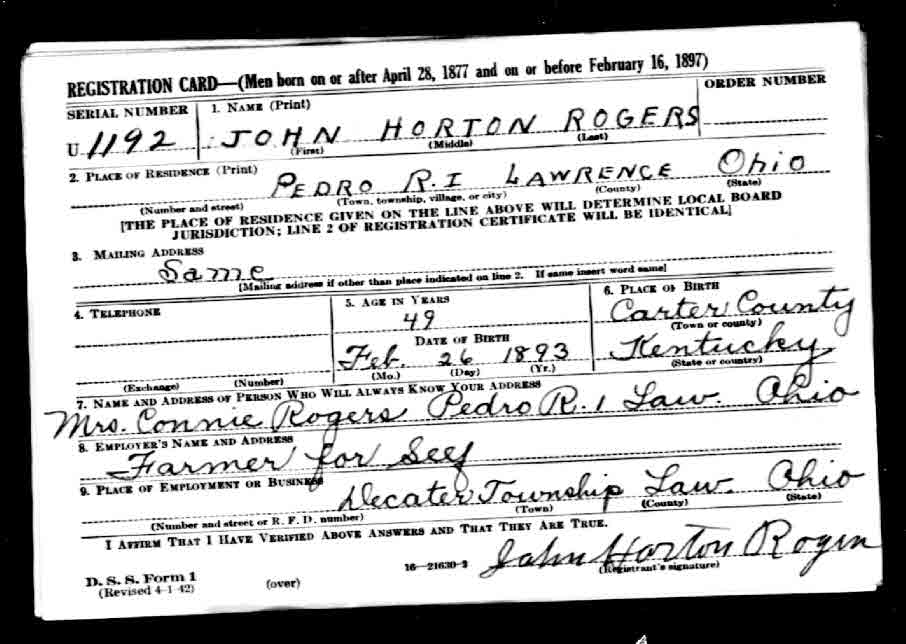 REGISTRATION CARD—(Men born on or after April 28, 1877 and on or before February 16, 1897)
SERIAL NUMBER 1. NAME (Print) ORDER NUMBER
U 1192 JOHN HORTON ROGERS
(First) (Middle) (Last)
2. PLACE OF RESIDENCE (Print)
PEDRO R.I LAWRENCE Ohio
(Number and street) (Town, township, village, or city) (County) (State)
[THE PLACE OF RESIDENCE GIVEN ON THE LINE ABOVE WILL DETERMINE LOCAL BOARD
JURISDICTION; LINE 2 OF REGISTRATION CERTIFICATE WILL BE IDENTICAL]
3. MAILING ADDRESS
Same
[Mailing address if other than place indicated on line 2. If same insert word same]
4. TELEPHONE 5. AGE IN YEARS 6. PLACE OF BIRTH
49 Carter County
(Town or county)
DATE OF BIRTH
Feb. 26 1893 Kentucky
(Exchange) (Number) (Mo.) (Day) (Yr.) (State or country)
7. NAME AND ADDRESS OF PERSON WHO WILL ALWAYS KNOW YOUR ADDRESS
Mrs. Connie Rogers Pedro R. 1 Law. Ohio
8. EMPLOYER'S NAME AND ADDRESS
Farmer for Self
9. PLACE OF EMPLOYMENT OR BUSINESS
Decater Township Law. Ohio
(Number and street or R. F. D. number) (Town) (County) (State)
I AFFIRM THAT I HAVE VERIFIED ABOVE ANSWERS AND THAT THEY ARE TRUE.
John Horton Rogers
D. S. S. Form 1 (over) 16—21630-2 (Registrant's signature)
(Revised 4-1-42)